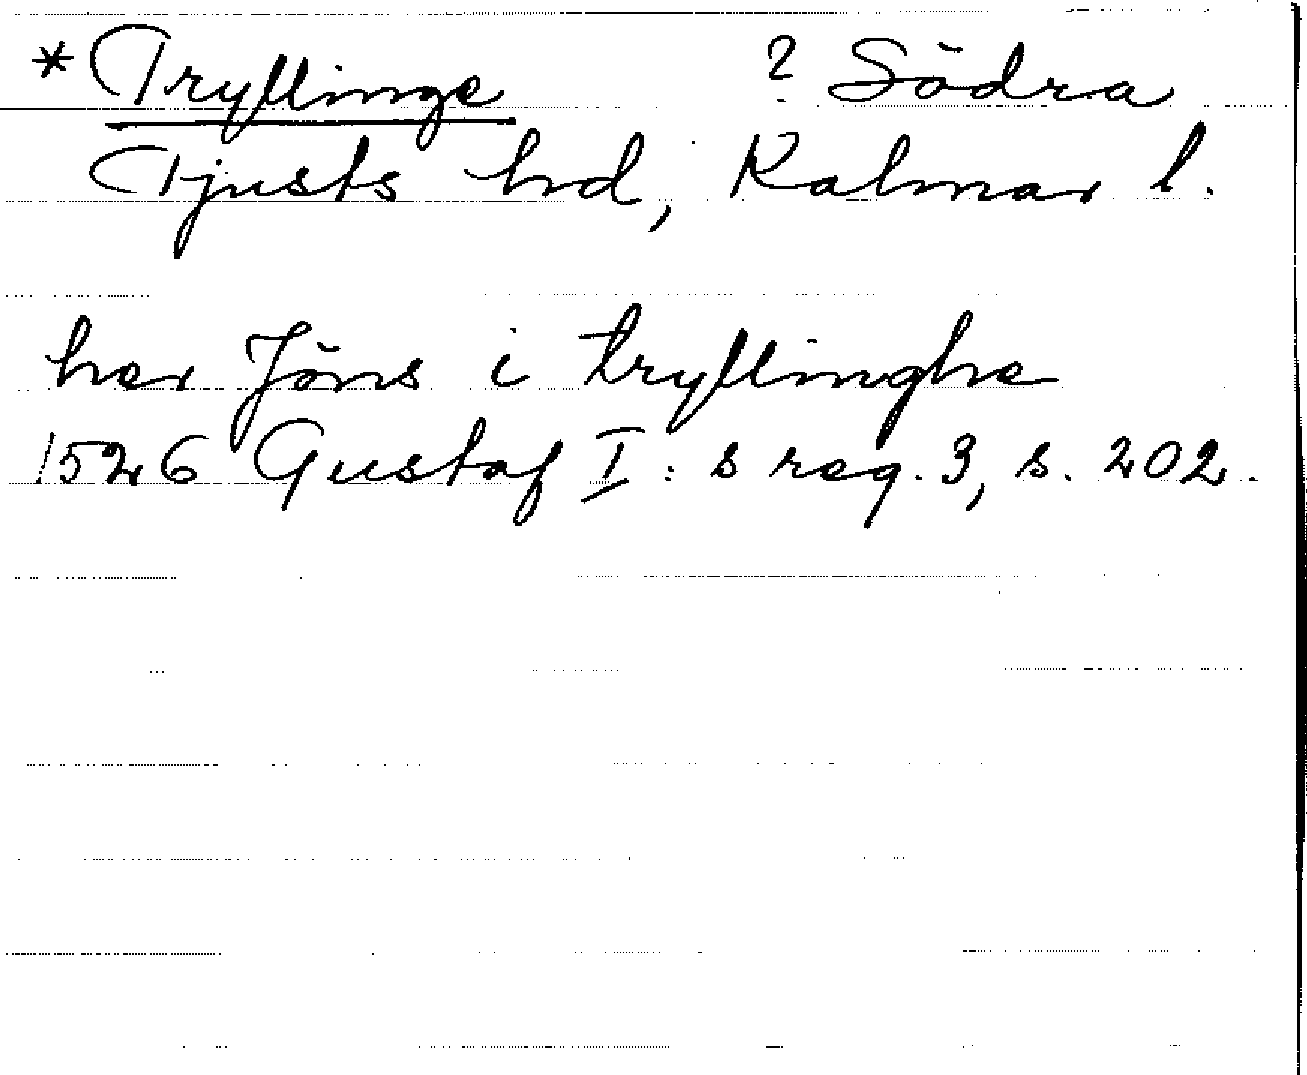 * Tryllinge ? Södra
Tjusts hd, Kalmar l.
her Jöns i tryllinghe
1526 Gustaf I:s reg. 3, s. 202.